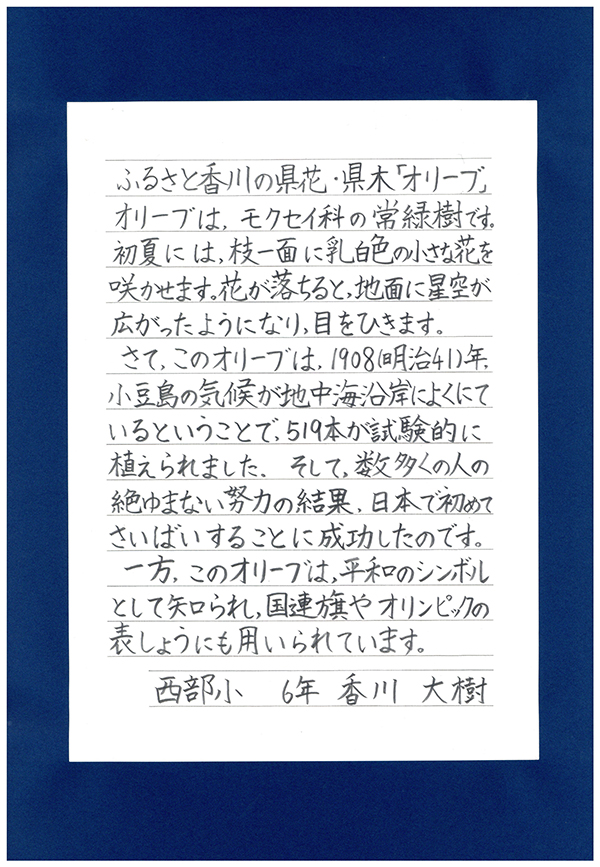 ふるさと香川の県花・県木「オリーブ」
オリーブは，モクセイ科の常緑樹です。
初夏には，枝一面に乳白色の小さな花を
咲かせます。花が落ちると，地面に星空が
広がったようになり，目をひきます。
さて，このオリーブは，1908(明治41)年，
小豆島の気候が地中海沿岸によくにて
いるということで，519本が試験的に
植えられました。そして，数多くの人の
絶ゆまない努力の結果，日本で初めて
さいばいすることに成功したのです。
一方，このオリーブは，平和のシンボル
として知られ，国連旗やオリンピックの
表しょうにも用いられています。
西部小　6年　香川　大樹